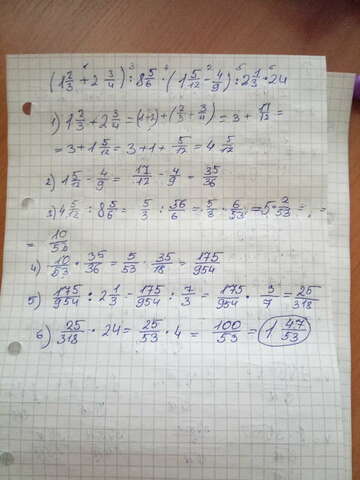 (1 2/3 + 2 3/4) : 8 5/6 · (1 5/12 - 4/9) : 2 1/3 · 24
1) 1 2/3 + 2 3/4 = (1+2) + (2/3 + 3/4) = 3 + 17/12 =
= 3 + 1 5/12 = 3 + 1 + 5/12 = 4 5/12
2) 1 5/12 - 4/9 = 17/12 - 4/9 = 35/36
3) 4 5/12 : 8 5/6 = 5/3 : 56/6 = 5/3 · 6/53 = 5 · 2/53 =
= 10/53
4) 10/53 · 35/36 = 5/53 · 35/18 = 175/954
5) 175/954 : 2 1/3 = 175/954 : 7/3 = 175/954 · 3/7 = 25/318
6) 25/318 · 24 = 25/53 · 4 = 100/53 = 1 47/53